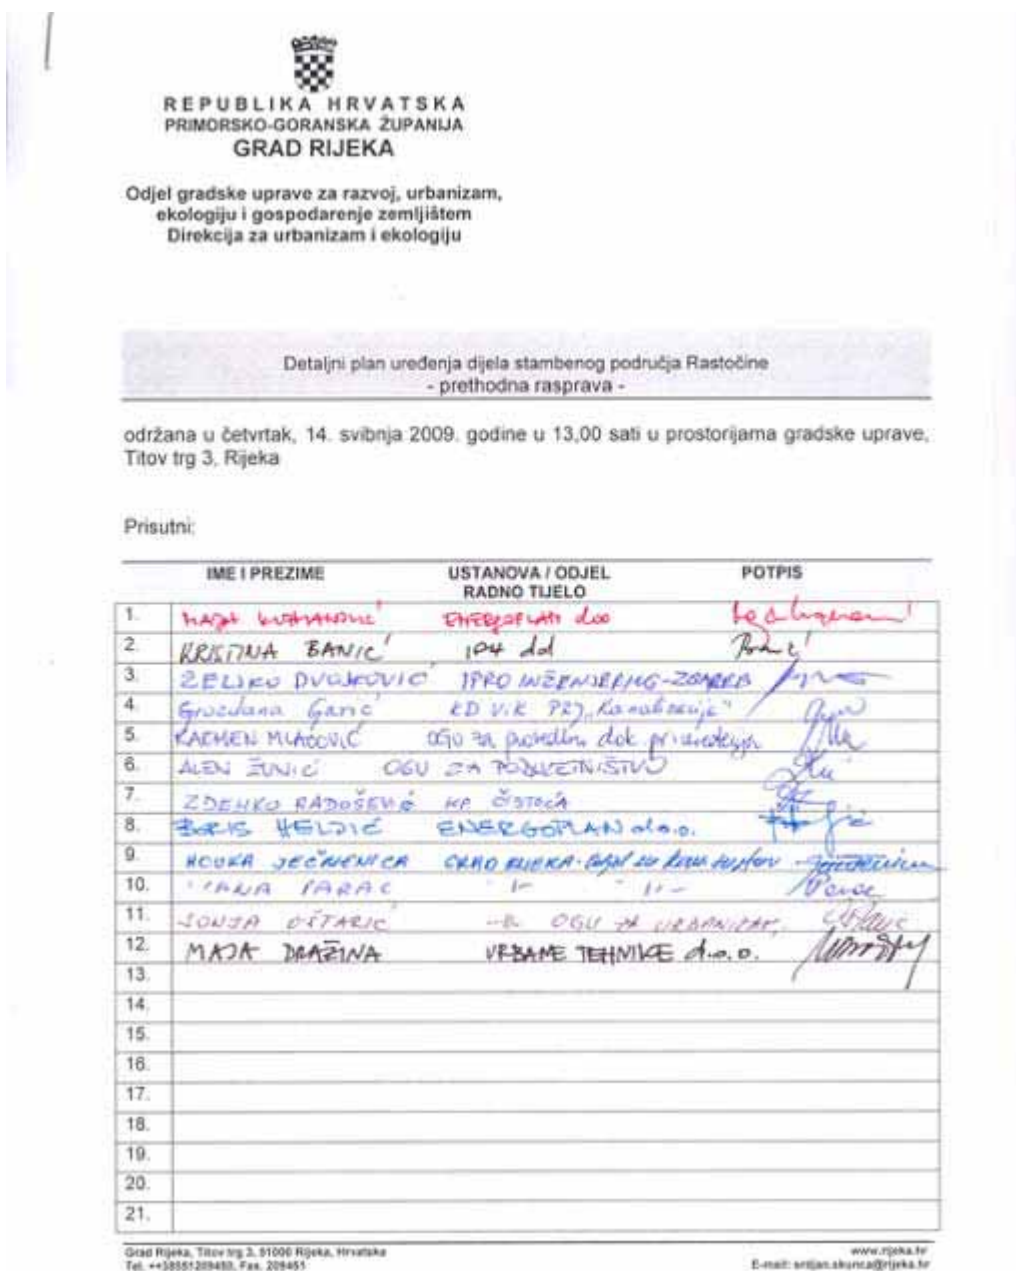 REPUBLIKA HRVATSKA
PRIMORSKO-GORANSKA ŽUPANIJA
GRAD RIJEKA
Odjel gradske uprave za razvoj, urbanizam,
ekologiju i gospodarenje zemljištem
Direkcija za urbanizam i ekologiju
Detaljni plan uređenja dijela stambenog područja Rastočine
- prethodna rasprava -
održana u četvrtak, 14. svibnja 2009. godine u 13,00 sati u prostorijama gradske uprave,
Titov trg 3, Rijeka
Prisutni:
IME I PREZIME USTANOVA / ODJEL POTPIS
RADNO TIJELO
1. MAJA ENERGOPLAN doo
2. KRISTINA BANIĆ IPH dd
3. ŽELJKO DVOJKOVIĆ IPRO INŽENJERING-ZAGREB
4. Grozdana Garić KD ViK PRJ "Kanalizacija"
5. OGU za
6. ALEN ŽUNIĆ OGU ZA PODUZETNIŠTVO
7. ZDENKO RADOŠEVIĆ KP ČISTOĆA
8. BORIS HELDIĆ ENERGOPLAN d.o.o.
9. JEČMENICA GRAD RIJEKA
10. PARAC - 11 -
11. SONJA OŠTARIĆ OGU ZA URBANIZAM
12. MAJA DRAŽINA URBANE TEHNIKE d.o.o.
13.
14.
15.
16.
17.
18.
19.
20.
21.
Grad Rijeka, Titov trg 3, 51000 Rijeka, Hrvatska www.rijeka.hr
Tel. ++38551209450, Fax. 209451 E-mail: srdjan.skunca@rijeka.hr